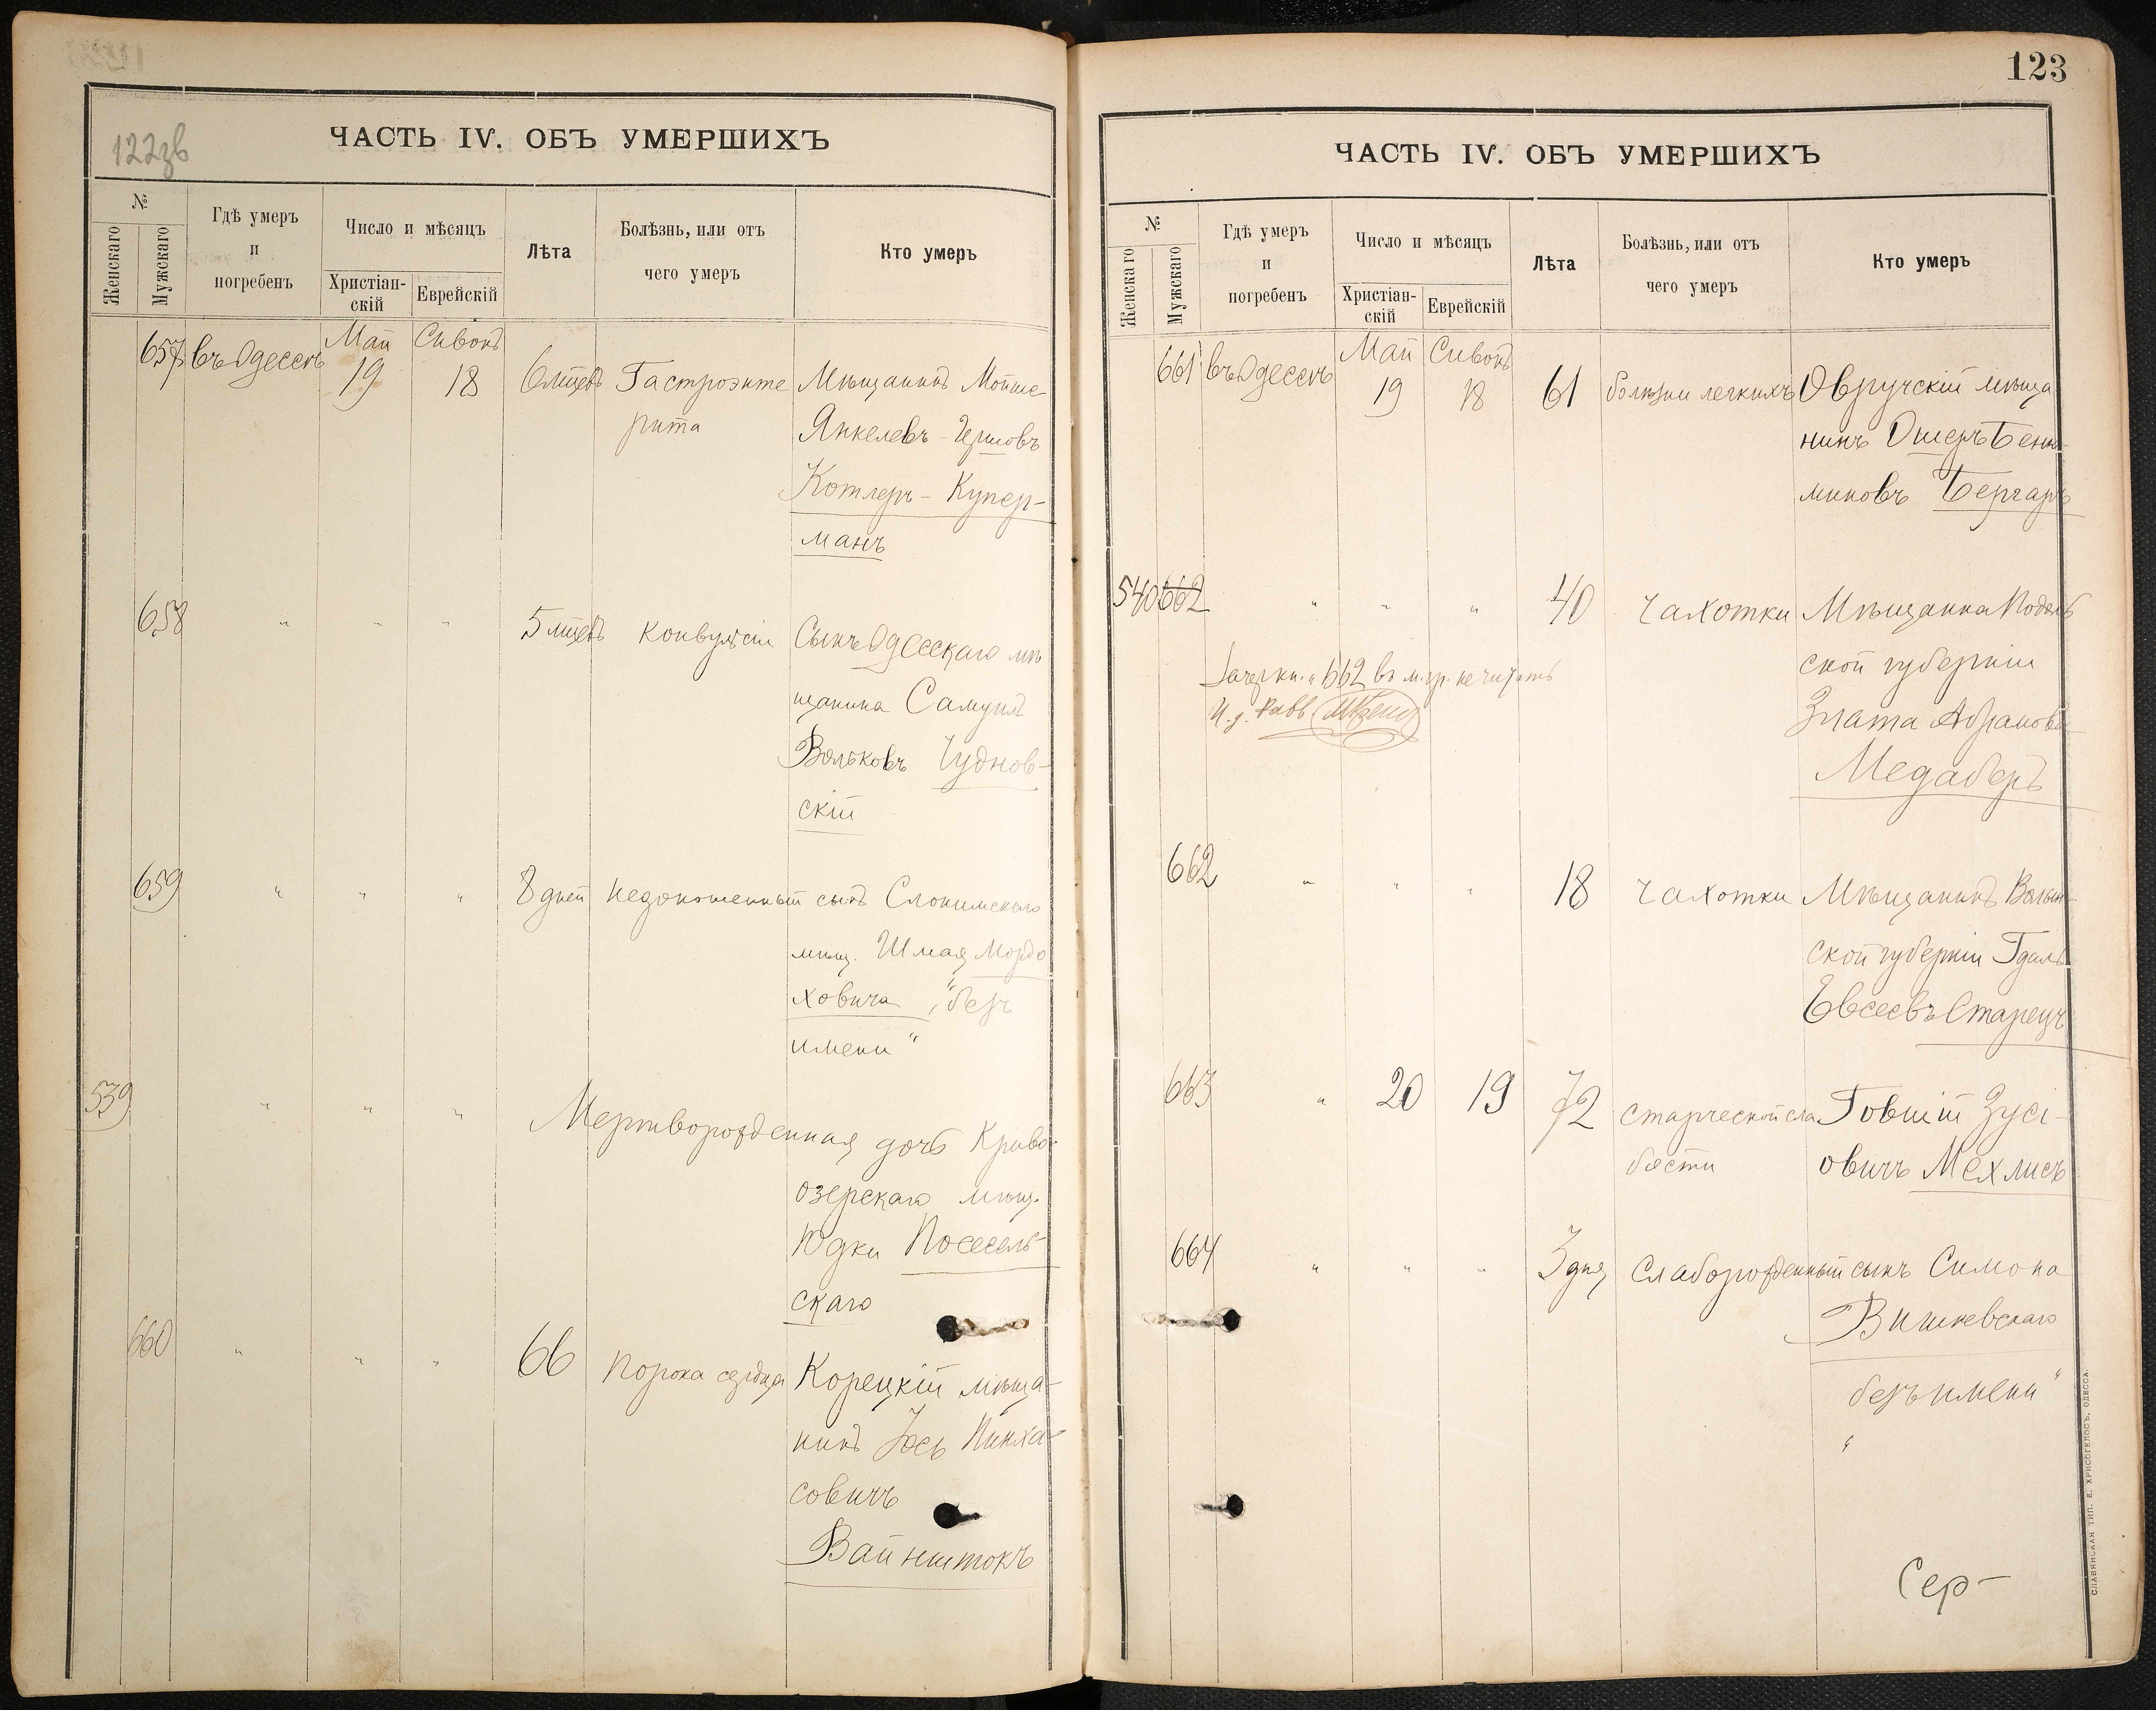 122зв
ЧАСТЬ IV. ОБЪ УМЕРШИХЪ
№
Женскаго
Мужскаго
Гдѣ умеръ
и
погребенъ
Число и мѣсяцъ
Христіан-
скій
Еврейскій
Лѣта
Болѣзнь, или отъ
чего умеръ
Кто умеръ
Май Сивонъ
657 въ Одессѣ 19 18 6 мцевъ Гастроэнте Мѣщанинъ Мойше
рита Янкелевъ-Гершовъ
Котлеръ-Купер-
манъ
658 " " " 5 мцевъ Конвульсіи Сынъ Одесскаго мѣ
щанина Самуилъ
Вольковъ Чуднов-
скій
659 " " " 8 дней Недоношенный сынъ Слонимскаго
мѣщ. Шмая Мордо
ховича, "безъ
имени"
539 " " " Мертворожденная дочь Криво-
озерскаго мѣщ.
Юдки Посесель-
скаго
660 " " " 66 Порока сердца Корецкій мѣща-
нинъ Іось Пинха-
совичъ
Вайнштокъ
123
ЧАСТЬ IV. ОБЪ УМЕРШИХЪ
№
Женскаго
Мужскаго
Гдѣ умеръ
и
погребенъ
Число и мѣсяцъ
Христіан-
скій
Еврейскій
Лѣта
Болѣзнь, или отъ
чего умеръ
Кто умеръ
Май Сивонъ
661 въ Одессѣ 19 18 61 болѣзни легкихъ Овручскій мѣща
нинъ Ошеръ Бенья-
миновъ Бергаръ
540 662 " " " 40 Чахотки Мѣщанка Подоль
ской губерніи
Зачеркн. "662 въ м. гр. не читать
Злата Абрамова
И. д. Равв
Медаберъ
662 " " " 18 Чахотки Мѣщанинъ Волын-
ской губерніи Гдаль
Евсеевъ Старецъ
663 " 20 19 72 старческой сла Говшій Зусі-
бости овичъ Мехлисъ
664 " " " 3 дня Слаборожденный сынъ Симона
Вишневскаго
"безъ имени"
Сер-
СЛАВЯНСКАЯ ТИП. Е. ХРИСОГЕЛОСЪ, ОДЕССА.